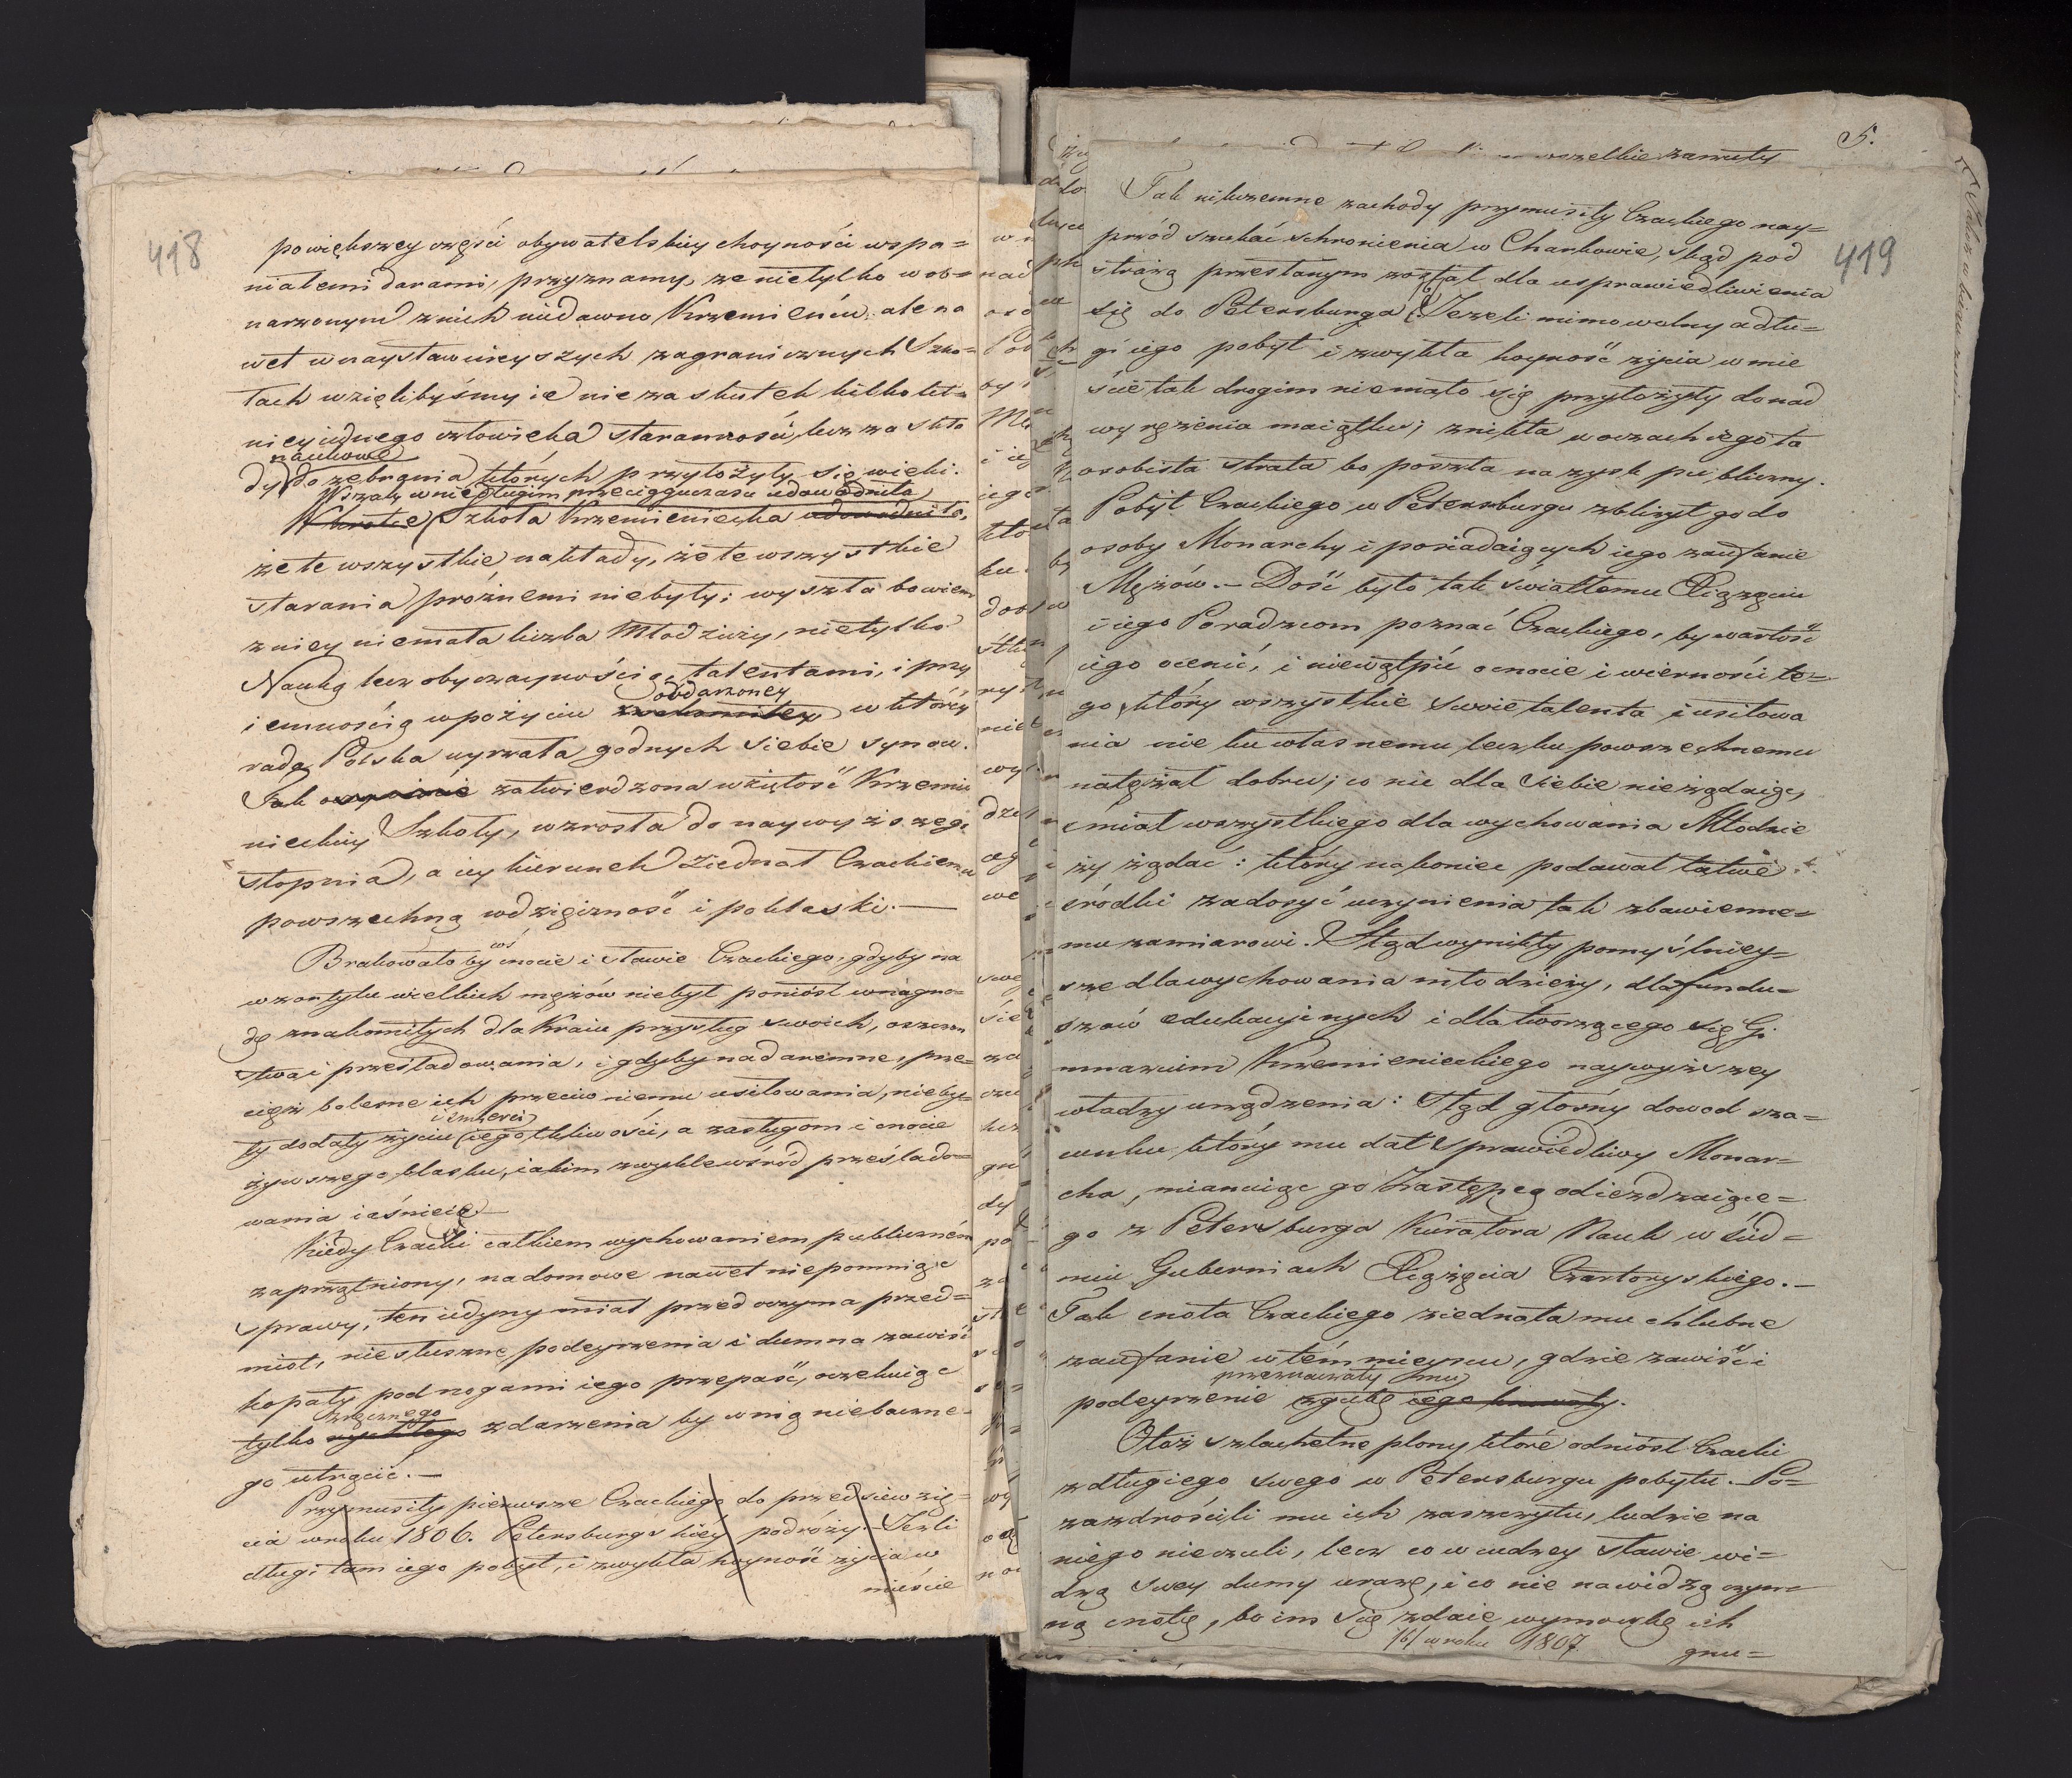 418
powiększey części obywatelskiey choyności wspa=
niałemi darami, przyznamy, ze nietylko w ob=
narzonym z nich niedawno Krzemieńcu ale na
wet w naysławnieyszych zagranicznych Szko=
łach wzięlibyśmy ie nie za skutek kilkolet=
niey iednego człowieka staranności, lecz za skła
naukowe
dy do zebrania których przyłożyły się wieki.
Wszały w niedługim przeciągu czasu udowodniła
W krotce Szkoła Krzemieniecka udowodniła,
że te wszystkie nakłady, że te wszystkie
starania próżnemi niebyły; wyszła bowiem
z niey niemała liczba Młodzieży, nietylko
Nauką lecz obyczaynością, talentami, i przy
obdarzoney
iemnością w pożyciu w którey
rada Polska uyrzała godnych siebie synow.
Tak zatwierdzona wziętość Krzemie
nieckiey Szkoły, wzrosła do naywyższego
stopnia, a iey kierunek ziednał Czackiemu
powszechną wdzięczność i poklaski.—
coś
Brakowało by cnocie i sławie Czackiego, gdyby na
wzor tylu wielkich mężów niebył poniósł w nagro=
dę znakomitych dla Kraiu przysług swoich, oszczer
stwa i prześladowania, i gdyby nadaremne, prze=
cięż bolesne ich przeciw niemu usiłowania, nieby=
i śmierci
ły dodały życiu iego tkliwości, a zasługom i cnocie
żywszego blasku, iakim zwykle wśród prześlado=
wania iaśnieie—
Kiedy Czacki całkiem wychowaniem publiczném
zaprzątniony, na domowe nawet niepomniąc
sprawy, ten iedyny miał przed oczyma przed=
miot, niesłuszne podeyrzenia i dumna zawiść
kopały pod nogami iego przepaść, oczekuiąc
zręcznego
tylko zdarzenia by w nią niebaczne=
go utrącić.—
Przymusiły pierwsze Czackiego do przedsięwzię=
cia w roku 1806. Petersburgskiéy podróży.— Jezli
długi tam iego pobyt, i zwykła hoyność życia w
mieście
5.
wszelkie zarzuty
419
Tak nikczemne zachody przymusiły Czackiego nay=
przód szukać schronienia w Charkowie, skąd pod
strażą przesłanym został dla usprawiedliwienia
się do Petersburga (6) Jezeli mimowolny a dłu=
gi iego pobyt i zwykła hoyność życia w mie
ście tak drogim niemało się przyłożyły do nad
wyrężenia maiątku; znikła w oczach iego ta
osobista strata bo poszła na zysk publiczny.
Pobyt Czackiego w Petersburgu zbliżył go do
osoby Monarchy i posiadaiących iego zaufanie
Mężów.— Dość było tak światłemu Xiążęciu
i iego Poradzcom poznać Czackiego, by wartość
iego ocenić, i niewątpić o cnocie i wierności te=
go, który wszystkie swoie talenta i usiłowa
nia nie ku własnemu, lecz ku powszechnemu
natężał dobru; co nic dla siebie nieżądaiąc,
śmiał wszystkiego dla wychowania Młodzie
ży żądać: który na koniec podawał łatwe
śrzódki zadosyć uczynienia tak zbawienne=
mu zamiarowi. Stąd wynikły pomyślniey=
sze dla wychowania młodzieży, dla fundu=
szów edukacyinych i dla tworzącego się G.
mnazium Krzemienieckiego naywyższey
władzy urządzenia: Stąd głosny dowod sza=
cunku który mu dał Sprawiedliwy Monar=
cha, mianuiąc go Zastępcą odieżdzaiące=
go z Petersburga Kuratora Nauk w śied=
miu Guberniach Xiążęcia Czartoryskiego.—
Tak cnota Czackiego ziednała mu chlubne
zaufanie w tém mieyscu, gdzie zawiść i
przeznaczały mu
podeyrzenie zgubę iego knowały.
Otoż szlachetne plony które odniósł Czacki
z długiego swego w Petersburgu pobytu. Po=
zazdrościli mu ich zaszczytu, ludzie na
niego nieczuli, lecz co w cudzey sławie wi=
dzą swey dumy urazę, i co nie nawidzą czyn=
ną cnotę, bo im się zdaie wymowką ich
/6/ w roku 1807
gnu=